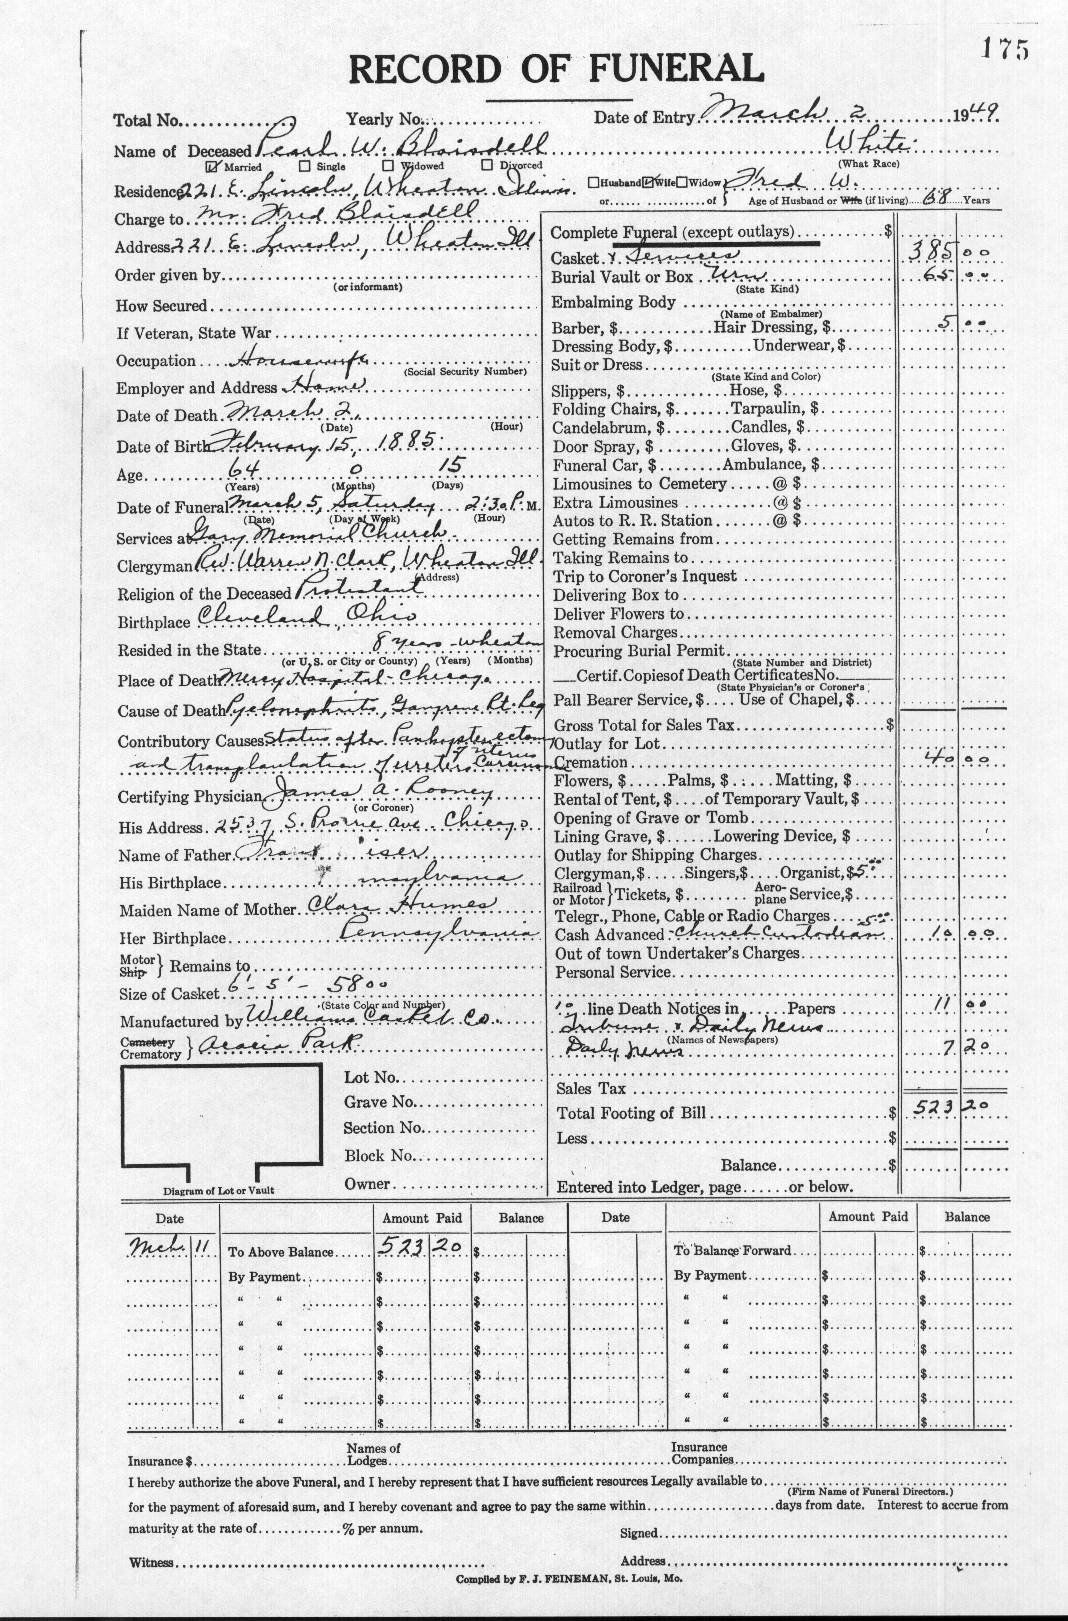 175
RECORD OF FUNERAL
Total No. Yearly No. Date of Entry March 2 1949
Name of Deceased Pearl W. Blaisdell White
Married Single Widowed Divorced (What Race)
Residence 221 E. Lincoln, Wheaton Illinois. Husband Wife Widow Fred W.
or of Age of Husband or Wife (if living) 68 Years
Charge to Mr. Fred Blaisdell
Address 221 E. Lincoln, Wheaton Ill
Order given by
(or informant)
How Secured
If Veteran, State War
Occupation Housewife
(Social Security Number)
Employer and Address Home
Date of Death March 2,
(Date) (Hour)
Date of Birth February 15, 1885
Age 64 0 15
(Years) (Months) (Days)
Date of Funeral March 5, Saturday 2:30 P. M.
(Date) (Day of Week) (Hour)
Services at Gary Memorial Church
Clergyman Rev. Warren N. Clark, Wheaton Ill.
(Address)
Religion of the Deceased Protestant
Birthplace Cleveland, Ohio
Resided in the State 8 years - Wheaton
(or U. S. or City or County) (Years) (Months)
Place of Death Mercy Hospital - Chicago
Cause of Death Pyelonephritis, Gangrene Rt. Leg
Contributory Causes Status after Panhysterectomy
and transplantation of ureters Carcinoma of uterus
Certifying Physician James A. Rooney
(or Coroner)
His Address 2537 S. Prairie Ave. Chicago
Name of Father iser
His Birthplace nnsylvania
Maiden Name of Mother Clara Humes
Her Birthplace Pennsylvania
Motor Ship } Remains to
Size of Casket 6' - 5' - 5800
(State Color and Number)
Manufactured by Williams Casket Co.
Cemetery Crematory } Acacia Park
Lot No.
Grave No.
Section No.
Block No.
Owner
Diagram of Lot or Vault
Complete Funeral (except outlays) $
Casket & Services 385 00
Burial Vault or Box Urn 65 00
(State Kind)
Embalming Body
(Name of Embalmer)
Barber, $ Hair Dressing, $ 5 00
Dressing Body, $ Underwear, $
Suit or Dress
(State Kind and Color)
Slippers, $ Hose, $
Folding Chairs, $ Tarpaulin, $
Candelabrum, $ Candles, $
Door Spray, $ Gloves, $
Funeral Car, $ Ambulance, $
Limousines to Cemetery @ $
Extra Limousines @ $
Autos to R. R. Station @ $
Getting Remains from
Taking Remains to
Trip to Coroner's Inquest
Delivering Box to
Deliver Flowers to
Removal Charges
Procuring Burial Permit
(State Number and District)
Certif. Copies of Death Certificates No.
(State Physician's or Coroner's)
Pall Bearer Service, $ Use of Chapel, $
Gross Total for Sales Tax $
Outlay for Lot
Cremation 40 00
Flowers, $ Palms, $ Matting, $
Rental of Tent, $ of Temporary Vault, $
Opening of Grave or Tomb
Lining Grave, $ Lowering Device, $
Outlay for Shipping Charges
Clergyman, $ Singers, $ Organist, $ 5.00
Railroad or Motor } Tickets, $ Aeroplane Service, $
Telegr., Phone, Cable or Radio Charges
Cash Advanced Church Custodian 10 00
Out of town Undertaker's Charges
Personal Service
10 line Death Notices in Papers 11 00
Tribune & Daily News
(Names of Newspapers)
Daily News 7 20
Sales Tax
Total Footing of Bill $ 523 20
Less $
Balance $
Entered into Ledger, page or below.
Date Amount Paid Balance Date Amount Paid Balance
Mch. 11 To Above Balance 523 20 $ To Balance Forward $
By Payment $ $ By Payment $ $
" " $ $ " " $ $
" " $ $ " " $ $
" " $ $ " " $ $
" " $ $ " " $ $
" " $ $ " " $ $
" " $ $ " " $ $
Insurance $ Names of Lodges Insurance Companies
I hereby authorize the above Funeral, and I hereby represent that I have sufficient resources Legally available to
(Firm Name of Funeral Directors.)
for the payment of aforesaid sum, and I hereby covenant and agree to pay the same within days from date. Interest to accrue from
maturity at the rate of % per annum.
Signed
Witness Address
Compiled by F. J. FEINEMAN, St. Louis, Mo.